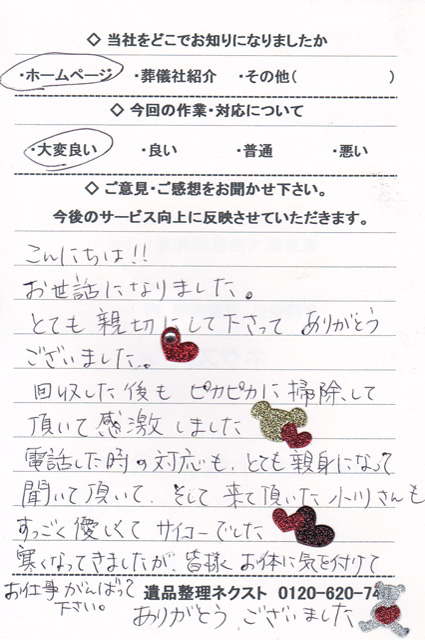 ◇ 当社をどこでお知りになりましたか
・ホームページ ・葬儀社紹介 ・その他( )
◇ 今回の作業・対応について
・大変良い ・良い ・普通 ・悪い
◇ ご意見・ご感想をお聞かせ下さい。
今後のサービス向上に反映させていただきます。
こんにちは!!
お世話になりました。
とても親切にして下さって ありがとう
ございました。
回収した後も ピカピカに掃除して
頂いて感激しました
電話した時の対応も、とても親身になって
聞いて頂いて、そして来て頂いた小川さんも
すっごく優しくてサイコーでした
寒くなってきましたが、皆様お体に気を付けて
お仕事がんばって 遺品整理ネクスト 0120-620-74
下さい。 ありがとうございました